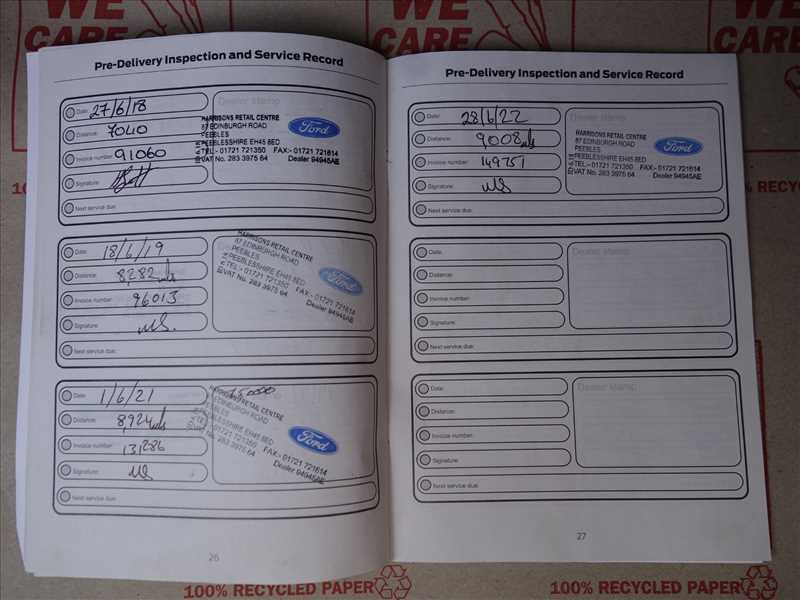 WE
CARE
WE
CARE
WE
CARE
Pre-Delivery Inspection and Service Record
Date: 27/6/18
Distance: 7040
Invoice number: 91060
Signature:
Next service due:
Dealer stamp
HARRISONS RETAIL CENTRE
87 EDINBURGH ROAD
PEEBLES
PEEBLESSHIRE EH45 8ED
TEL:- 01721 721350 FAX:- 01721 721614
VAT No. 283 3975 64 Dealer 94945AE
Ford
Date: 18/6/19
Distance: 8,282 mls
Invoice number: 96013
Signature: MS.
Next service due:
HARRISONS RETAIL CENTRE
87 EDINBURGH ROAD
PEEBLES
PEEBLESSHIRE EH45 8ED
TEL:- 01721 721350 FAX:- 01721 721614
VAT No. 283 3975 64 Dealer 94945AE
Ford
Date: 1/6/21
Distance: 8,924 mls
Invoice number: 131286
Signature: MS
Next service due:
HARRISONS RETAIL CENTRE
EDINBURGH ROAD
PEEBLES
PEEBLESSHIRE EH45 8ED
01721 721350 FAX:- 01721 721614
VAT No. 283 3975 64 Dealer 94945AE
Ford
26
Pre-Delivery Inspection and Service Record
Date: 28/6/22
Distance: 9008 mls
Invoice number: 149751
Signature: MS
Next service due:
HARRISONS RETAIL CENTRE
87 EDINBURGH ROAD
PEEBLES
PEEBLESSHIRE EH45 8ED
TEL:- 01721 721350 FAX:- 01721 721614
VAT No. 283 3975 64 Dealer 94945AE
Ford
Date:
Distance:
Invoice number:
Signature:
Next service due:
Dealer stamp
Date:
Distance:
Invoice number:
Signature:
Next service due:
Dealer stamp
27
100% RECYCLED PAPER
100% RECYCLED PAPER